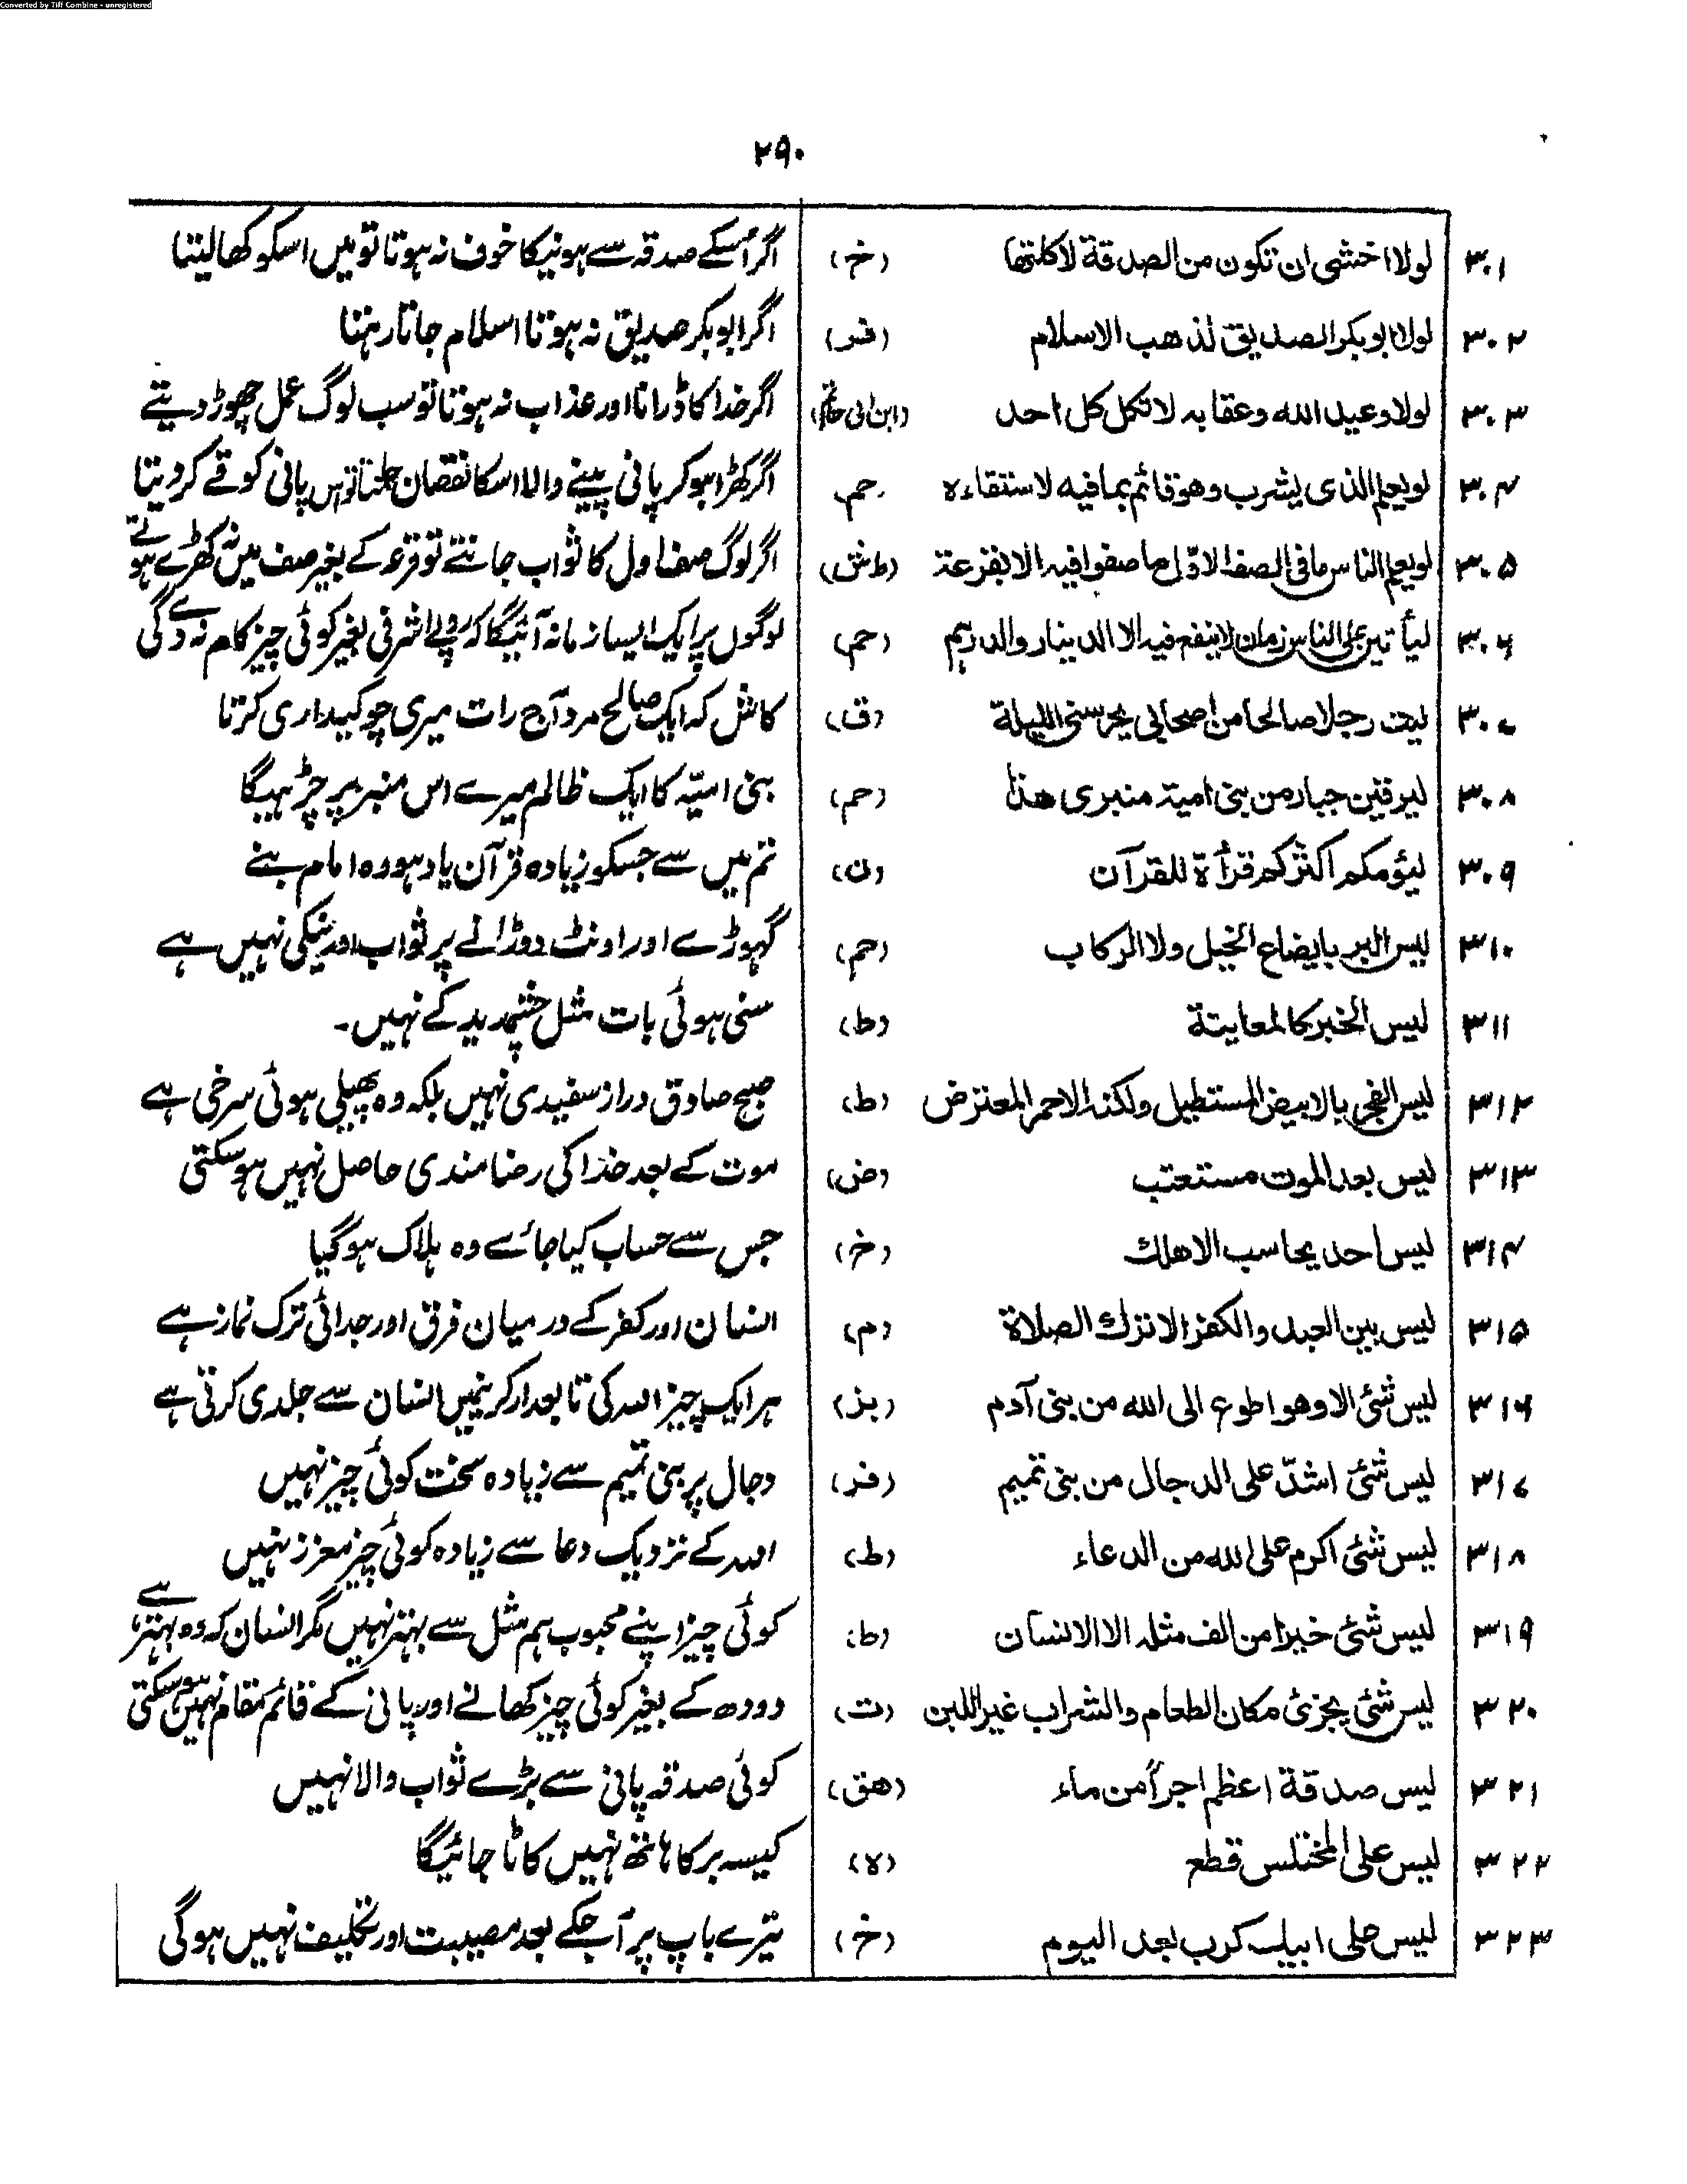 Converted by Tiff Combine - unregistered
۲۹۰
۳۰۱ لولا اخشی ان تکون من الصدقة لاکلتها (خ) اگر اُسکے صدقہ سے ہونیکا خوف نہ ہوتا تو میں اسکو کھا لیتا
۳۰۲ لولا ابوبکر الصدیق لذهب الاسلام (فر) اگر ابوبکر صدیق نہ ہوتا اسلام جاتا رہتا
۳۰۳ لولا وعید الله وعقابه لاتکل کل احد (ابن ابی حاتم) اگر خدا کا ڈرانا اور عذاب نہ ہوتا تو سب لوگ عمل چھوڑ دیتے
۳۰۴ لویعلم الذی یشرب وهو قائم بما فیه لاستقاءه حم اگر کھڑا ہو کر پانی پینے والا اسکا نقصان جانتا تو اس پانی کو قے کر دیتا
۳۰۵ لویعلم الناس ما فی الصف الاوّل ما صفوا فیه الا بقرعة (ط ش) اگر لوگ صف اول کا ثواب جانتے تو قرعہ کے بغیر صف میں نہ کھڑے ہوتے
۳۰۶ لیأتین علی الناس زمان لاینفع فیه الا الدینار والدرہم (حم) لوگوں پر ایک ایسا زمانہ آئیگا کہ روپے اشرفی بغیر کوئی چیز کام نہ دے گی
۳۰۷ لیت رجلا صالحا من اصحابی یحرسنی اللیلة (ق) کاش کہ ایک صالح مرد آج رات میری چوکیداری کرتا
۳۰۸ لیرقین جبار من بنی امیة منبری هذا (حم) بنی امیّہ کا ایک ظالم میرے اس منبر پر چڑہیگا
۳۰۹ لیؤمکم اکثرکم قرأة للقرآن (ن) تم میں سے جسکو زیادہ قرآن یاد ہو وہ امام بنے
۳۱۰ لیس البر بایضاع الخیل ولا الرکاب (حم) گہوڑے اور اونٹ دوڑانے پر ثواب اور نیکی نہیں ہے
۳۱۱ لیس الخبر کالمعاینة (ط) سنی ہوئی بات مثل چشمدید کے نہیں۔
۳۱۲ لیس الفجر بالابیض المستطیل ولکنه الاحمر المعترض (ط) صبح صادق دراز سفیدی نہیں بلکہ وہ پھیلی ہوئی سرخی ہے
۳۱۳ لیس بعد الموت مستعتب (ض) موت کے بعد خدا کی رضامندی حاصل نہیں ہو سکتی
۳۱۴ لیس احد یحاسب الا هلك (خ) جس سے حساب کیا جائے وہ ہلاک ہو گیا
۳۱۵ لیس بین العبد والکفر الا ترك الصلاة (م) انسان اور کفر کے درمیان فرق اور جدائی ترک نماز ہے
۳۱۶ لیس شئ الا وهو اطوع الی الله من بنی آدم (بز) ہر ایک چیز اللہ کی تابعدار کرنیمیں انسان سے جلدی کرتی ہے
۳۱۷ لیس شئ اشدّ علی الدجال من بنی تمیم (فر) دجال پر بنی تمیم سے زیادہ سخت کوئی چیز نہیں
۳۱۸ لیس شئ اکرم علی الله من الدعاء (ط) اللہ کے نزدیک دعا سے زیادہ کوئی چیز معزز نہیں
۳۱۹ لیس شئ خیرا من الف مثله الا الانسان (ط) کوئی چیز اپنے محبوب ہم مثل سے بہتر نہیں مگر انسان کہ وہ بہتر ہے
۳۲۰ لیس شئ یجزئ مکان الطعام والشراب غیر اللبن (ت) دودھ کے بغیر کوئی چیز کھانے اور پانی کے قائم مقام نہیں ہو سکتی
۳۲۱ لیس صدقة اعظم اجراً من ماء (هق) کوئی صدقہ پانی سے بڑے ثواب والا نہیں
۳۲۲ لیس علی المختلس قطع (لا) کیسہ بر کا ہاتھ نہیں کاٹا جائیگا
۳۲۳ لیس علی ابیك کرب بعد الیوم (خ) تیرے باپ پر آجکے بعد مصیبت اور تکلیف نہیں ہو گی